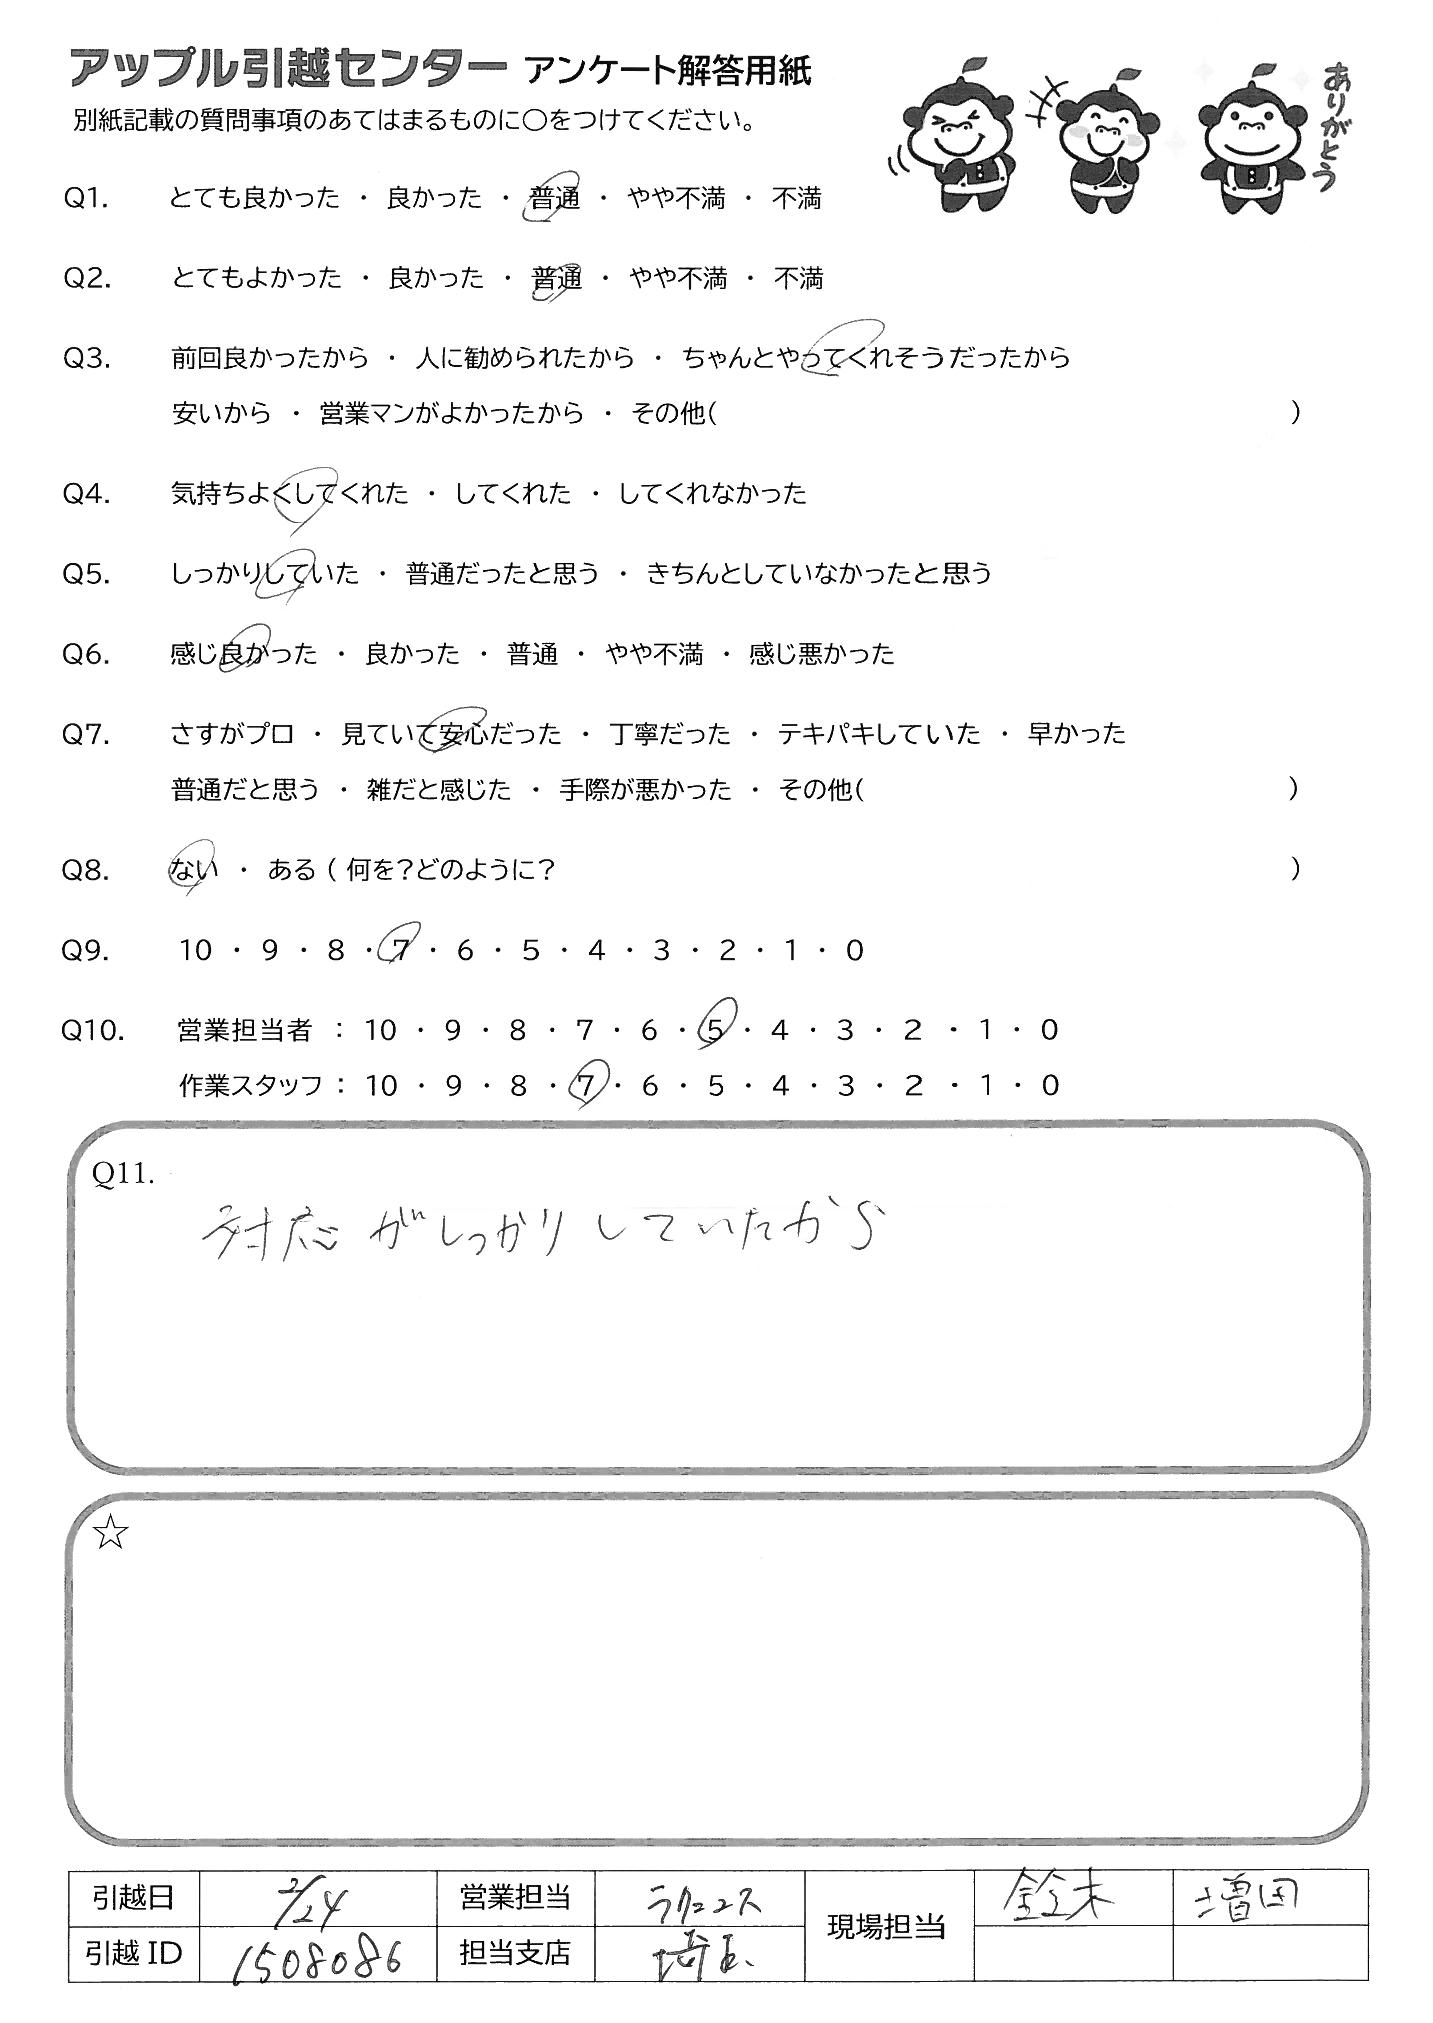 アップル引越センター アンケート解答用紙
ありがとう
別紙記載の質問事項のあてはまるものに〇をつけてください。
Q1. とても良かった ・ 良かった ・ 普通 ・ やや不満 ・ 不満
Q2. とてもよかった ・ 良かった ・ 普通 ・ やや不満 ・ 不満
Q3. 前回良かったから ・ 人に勧められたから ・ ちゃんとやってくれそうだったから
安いから ・ 営業マンがよかったから ・ その他( )
Q4. 気持ちよくしてくれた ・ してくれた ・ してくれなかった
Q5. しっかりしていた ・ 普通だったと思う ・ きちんとしていなかったと思う
Q6. 感じ良かった ・ 良かった ・ 普通 ・ やや不満 ・ 感じ悪かった
Q7. さすがプロ ・ 見ていて安心だった ・ 丁寧だった ・ テキパキしていた ・ 早かった
普通だと思う ・ 雑だと感じた ・ 手際が悪かった ・ その他( )
Q8. ない ・ ある ( 何を?どのように? )
Q9. 10 ・ 9 ・ 8 ・ 7 ・ 6 ・ 5 ・ 4 ・ 3 ・ 2 ・ 1 ・ 0
Q10. 営業担当者 : 10 ・ 9 ・ 8 ・ 7 ・ 6 ・ 5 ・ 4 ・ 3 ・ 2 ・ 1 ・ 0
作業スタッフ : 10 ・ 9 ・ 8 ・ 7 ・ 6 ・ 5 ・ 4 ・ 3 ・ 2 ・ 1 ・ 0
Q11.
対応がしっかりしていたから
☆
引越日 2/24 営業担当 現場担当 鈴木 増田
引越 ID 1508086 担当支店 埼玉